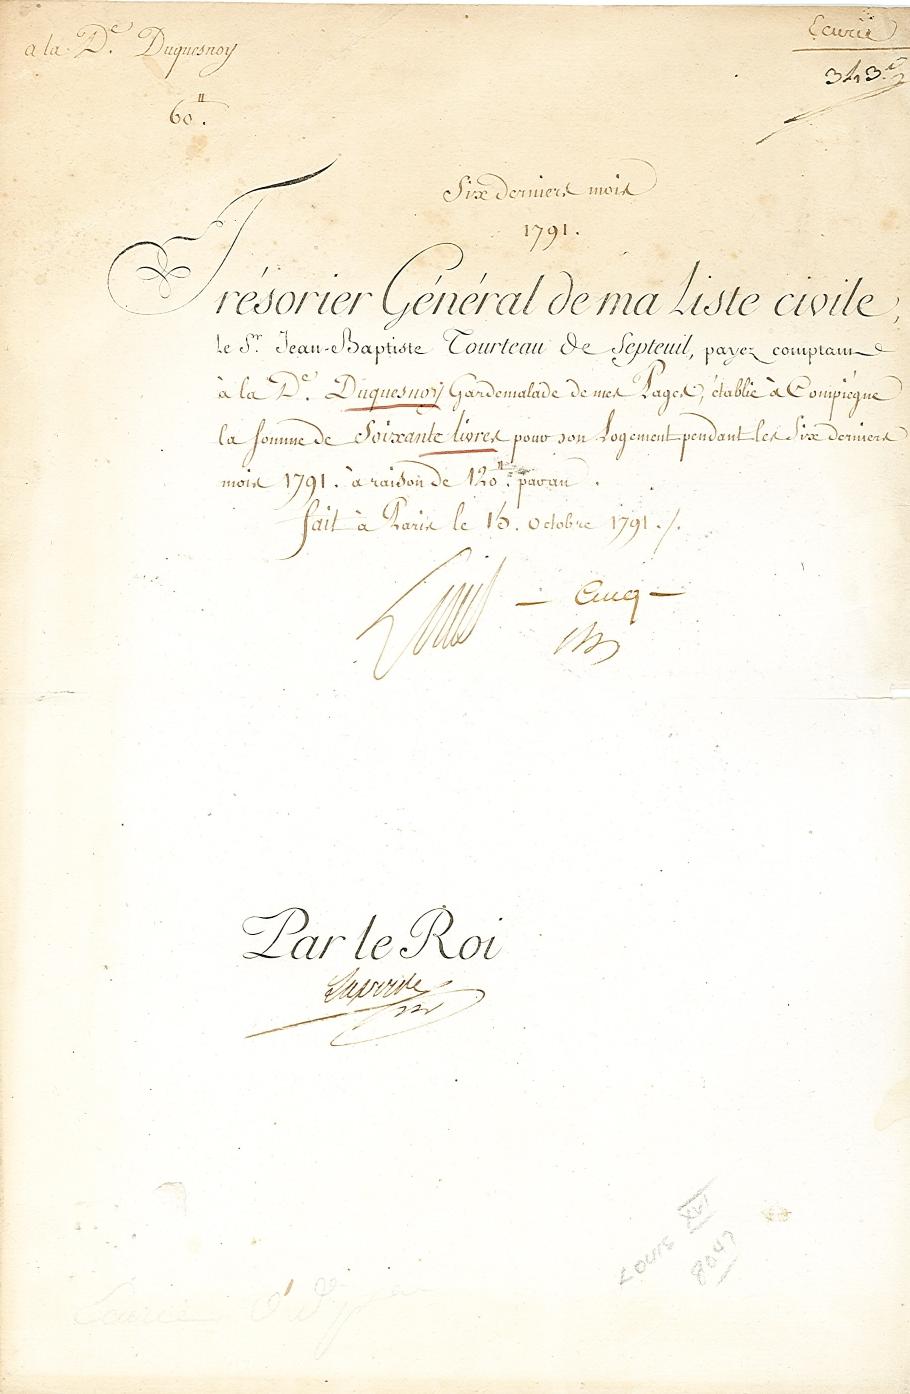 a la D.e Duquesnoy
Ecurie
60.tt
343.e
Six derniers mois
1791.
Trésorier Général de ma Liste civile,
le S.r Jean-Baptiste Tourteau de Septeuil, payez comptant
à la D.e Duquesnoy Gardemalade de mes Pages, établie à Compiegne
la somme de Soixante livres pour son Logement pendant les Six derniers
mois 1791. à raison de 120.tt par an.
fait à Paris le 15. Octobre 1791./.
Louis
Par le Roi
Laporte
LOUIS XVI